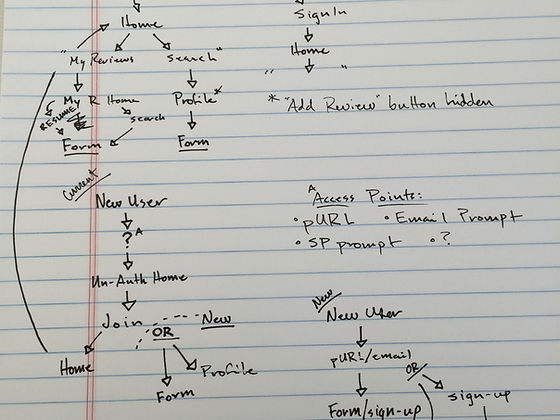 Home
"My Reviews
Search"
My R Home
RESUME
search
Profile*
Form
Form
Sign In
Home
" "
* "Add Review" button hidden
Current
New User
? A
Un-Auth Home
Join
OR
New
Home
Form
Profile
A Access Points:
• pURL • Email Prompt
• SP prompt • ?
New
New User
pURL/email
OR
Form/sign-up
sign-up